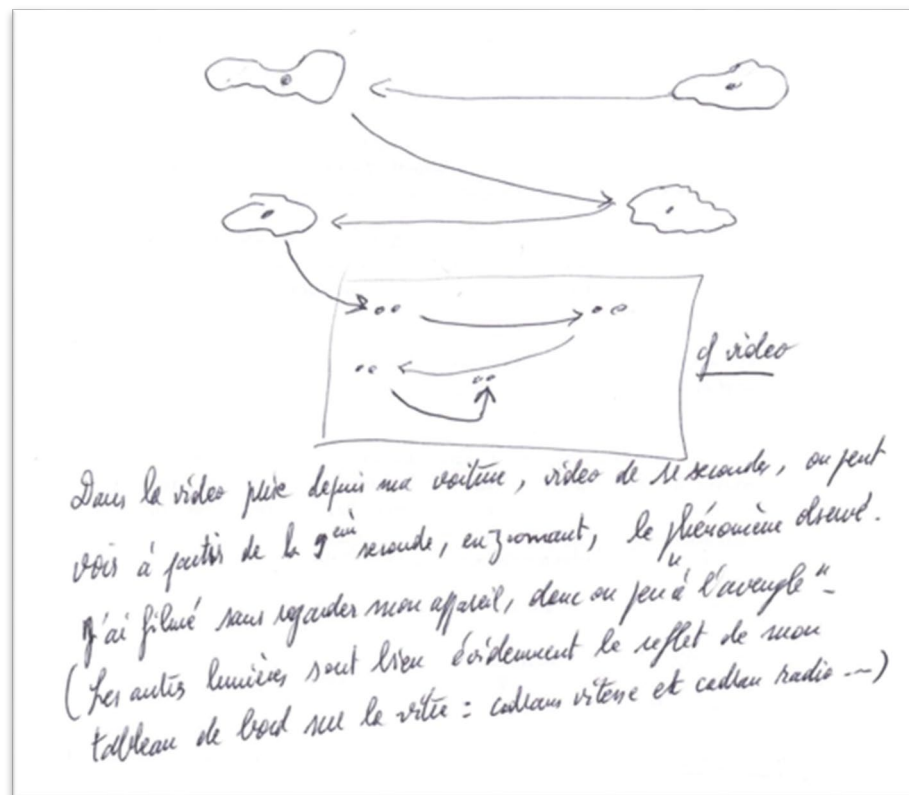 cf video
Dans la video prise depuis ma voiture, video de 11 secondes, on peut
voir à partir de la 9ème seconde, en zoomant, le phénomène observé.
J'ai filmé sans regarder mon appareil, donc un peu "à l'aveugle" -
(Les autres lumières sont bien évidemment le reflet de mon
tableau de bord sur la vitre : cadrans vitesse et cadran radio ---)